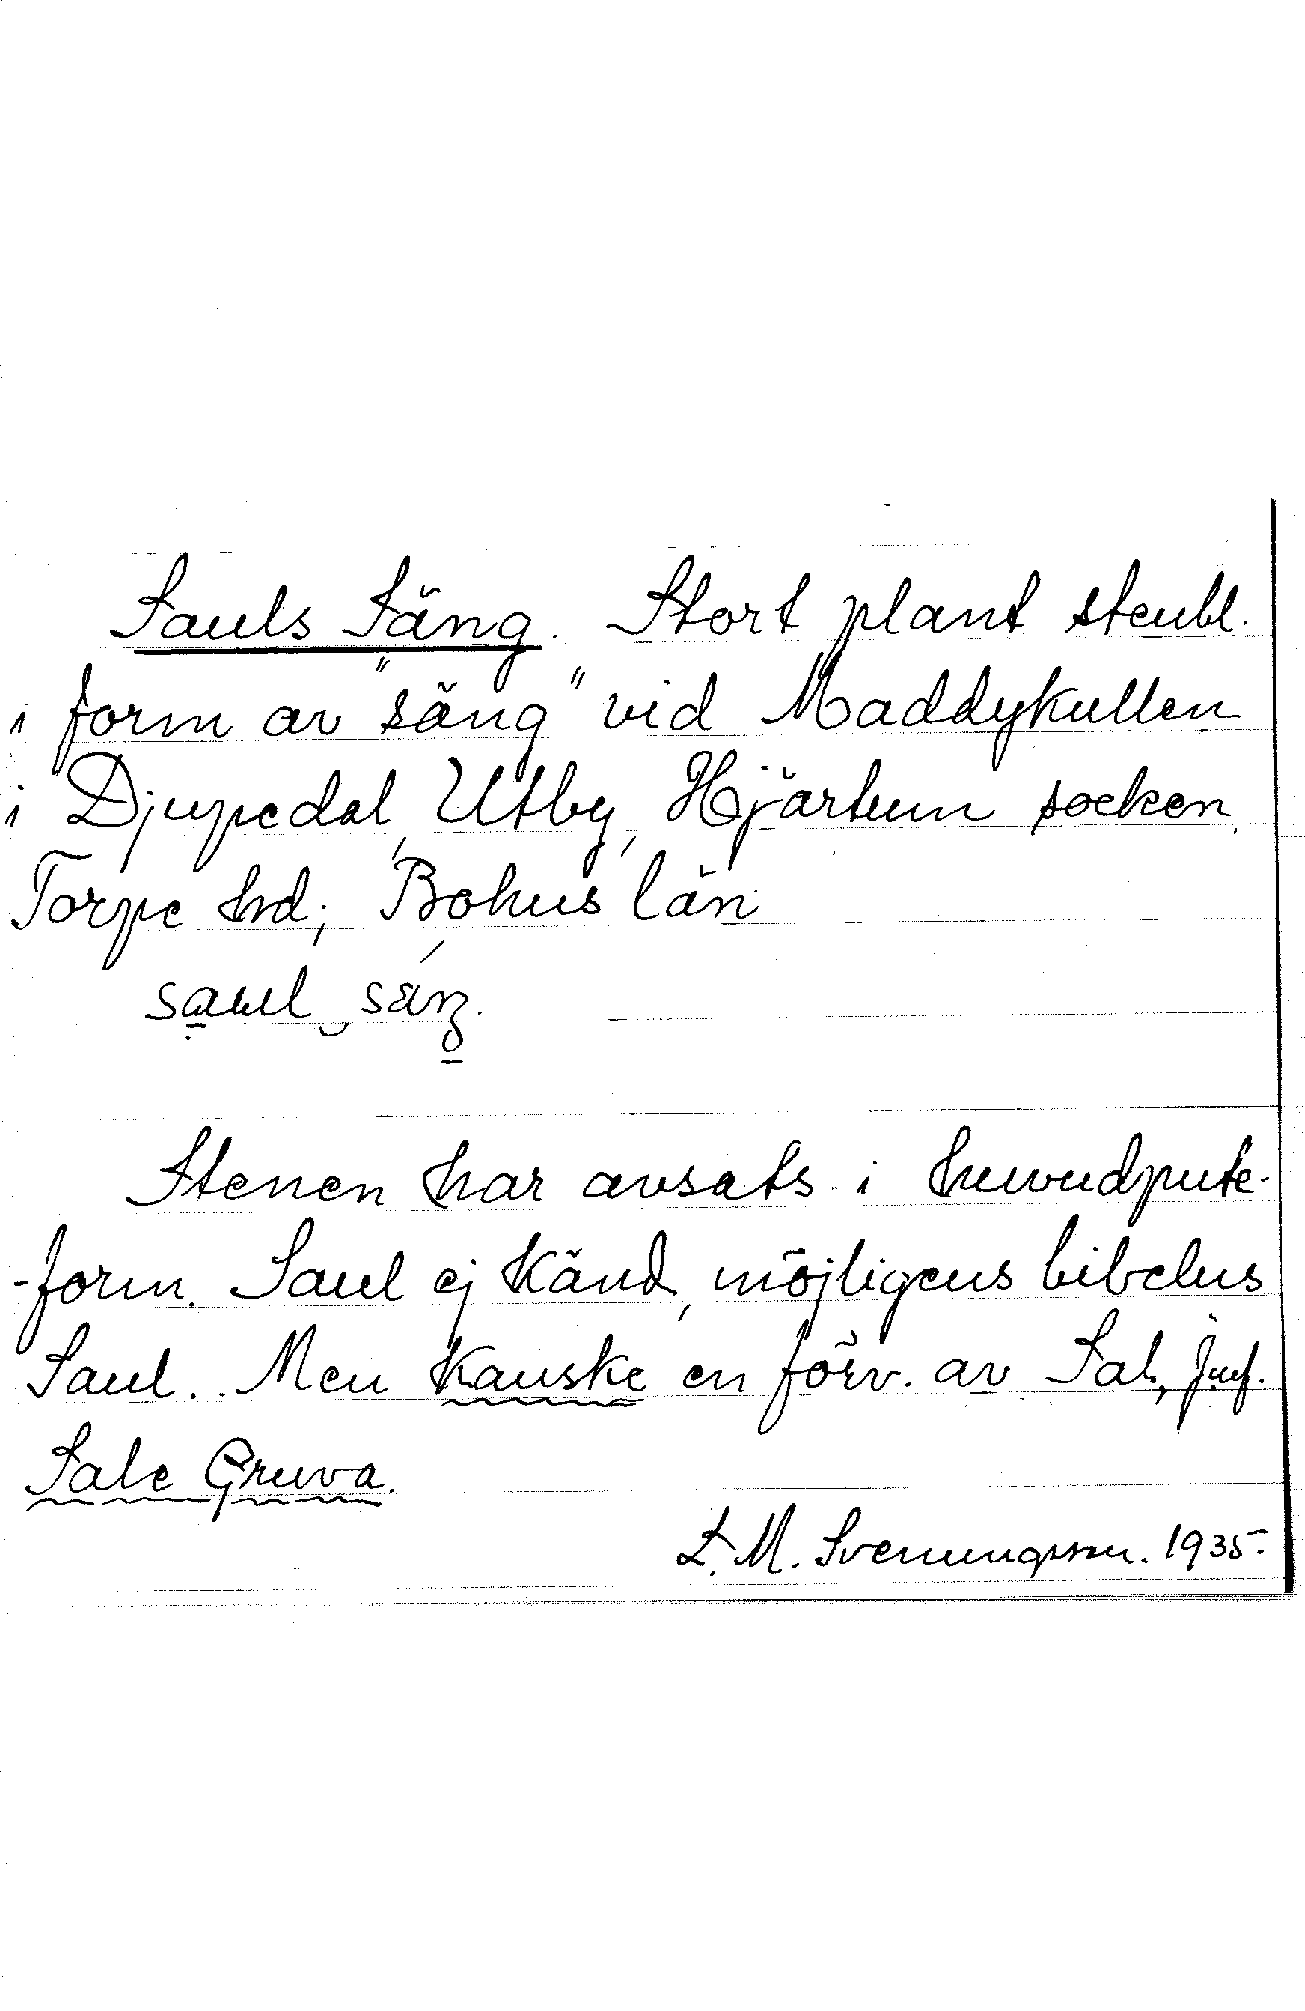 Sauls Säng. Stort plant stenbl.
i form av "säng" vid Maddykullen
i Djupedal, Utby, Hjärtum socken,
Torpe hrd; Bohus län
Stenen har avsats i huvudpute-
-form. Saul ej känd, möjligens bibelns
Saul. Men kanske en förv. av Sal, jmf.
Sale Gruva.
L. M. Svenungsson. 1935.